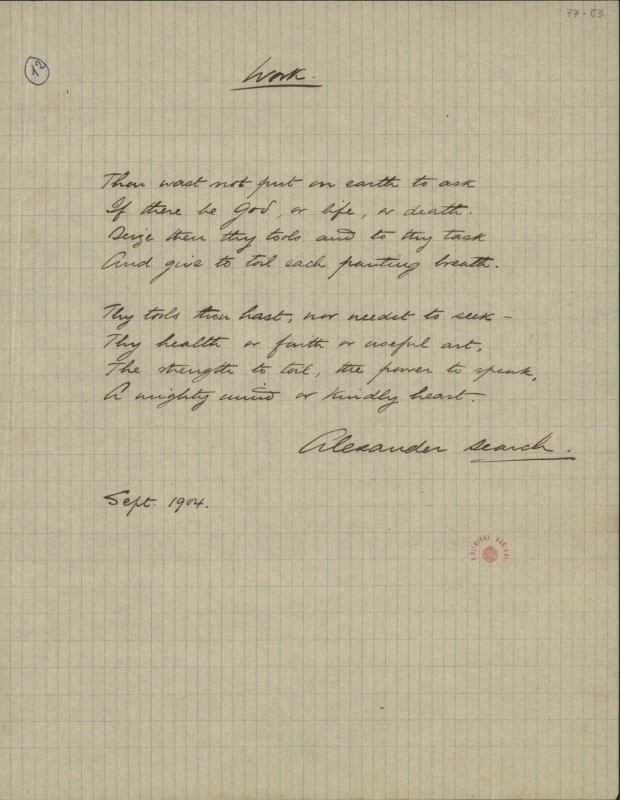 77-63
12
Work.
Thou wast not put on earth to ask
If there be God, or life, or death.
Seize then thy tools and to thy task
And give to toil each panting breath.
Thy tools thou hast, nor needst to seek -
Thy health or faith or useful art,
The strength to toil, the power to speak,
A mighty mind or kindly heart.
Alexander Search.
Sept. 1904.